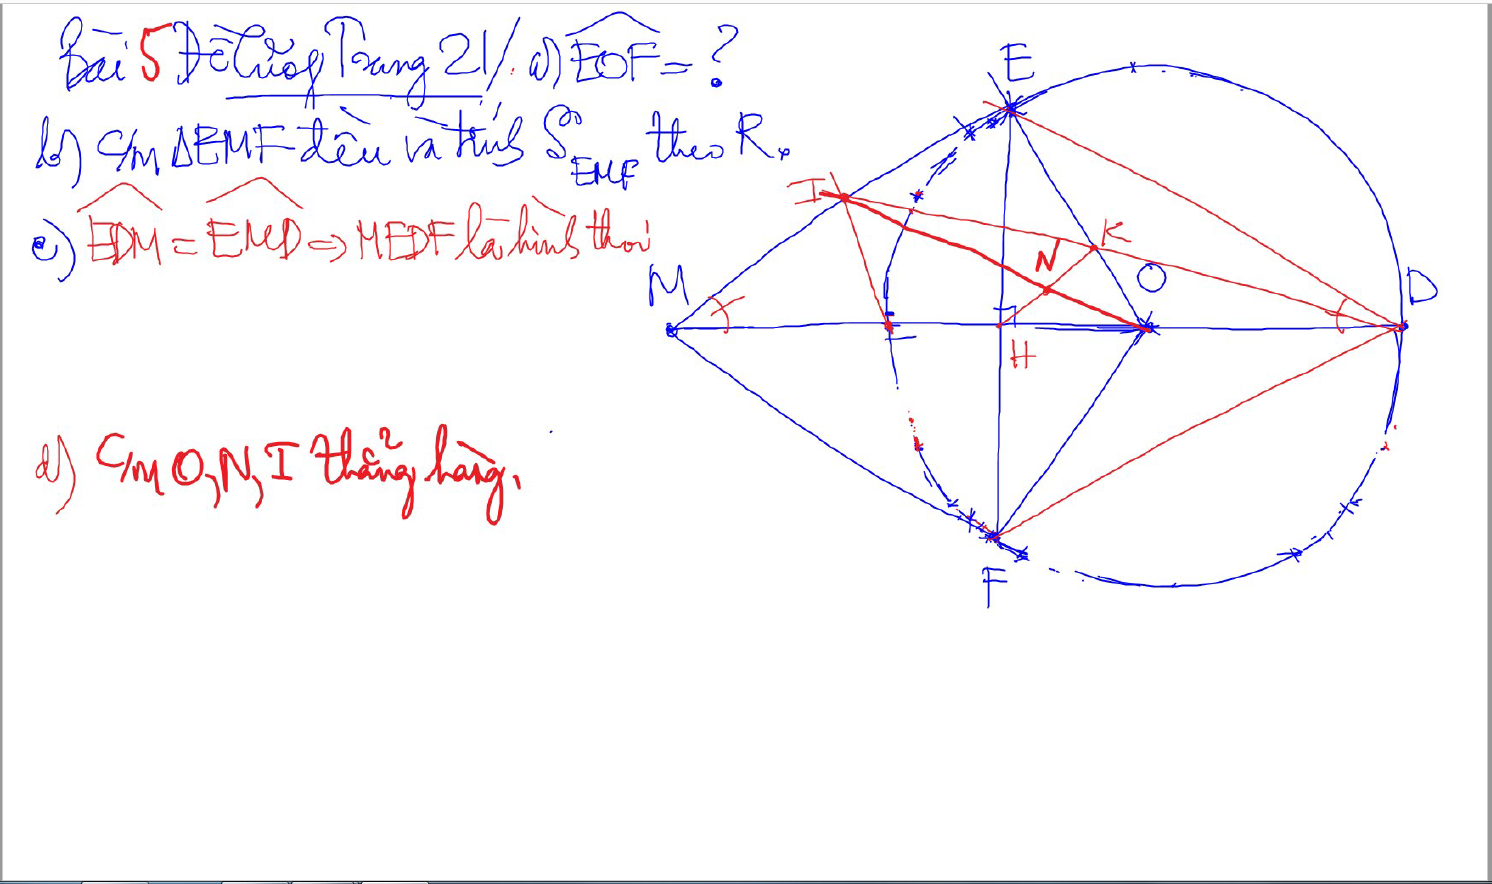 Bài 5 Đề Cương Trang 21/. a) EOF = ?
b) C/m ΔEMF đều và tính S EMF theo R.
c) EDM = EMD => MEDF là hình thoi
d) C/m O, N, I thẳng hàng.
E
I
K
N
O
M
D
H
F